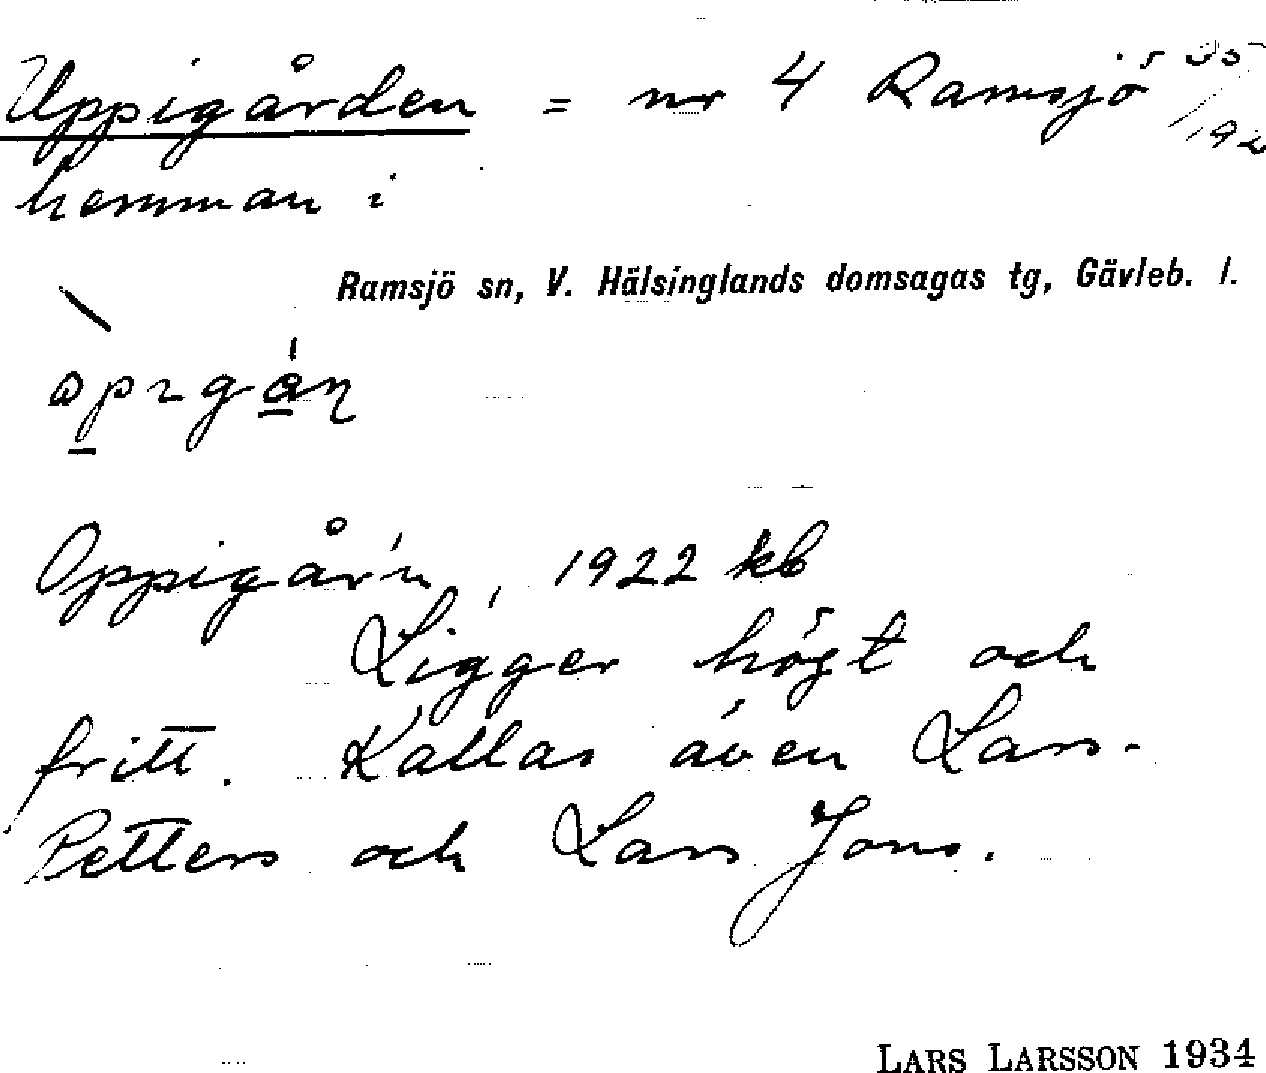 Uppigården = nr 4 Ramsjö
hemman i
Ramsjö sn, V. Hälsinglands domsagas tg, Gävleb. l.
Oppigår'n, 1922 kb
Ligger högt och
fritt. Kallas även Lars-
Petters och Lars Jons.
LARS LARSSON 1934